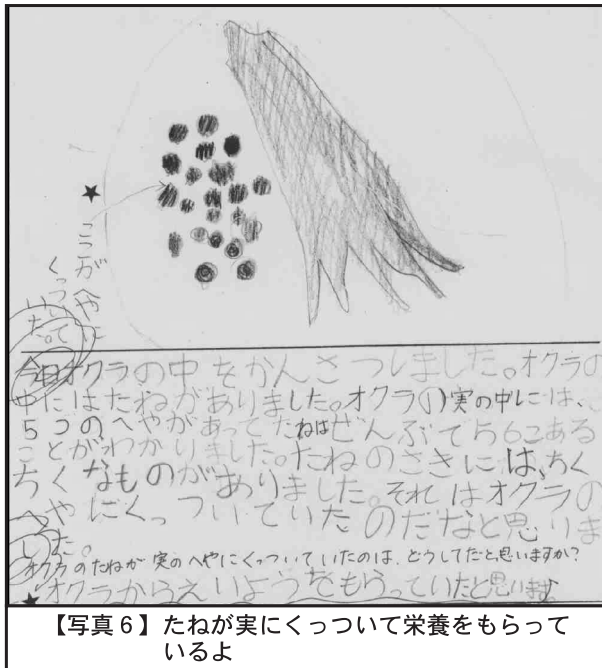 ★ ここがへやに
くっついて
いた。
今日オクラの中をかんさつしました。オクラの
中にはたねがありました。オクラの実の中には、
5つのへやがあってたねはぜんぶで56こある
ことがわかりました。たねのさきには、ちく
ちくなものがありました。それはオクラの
へやにくっついていたのだなと思いま
した。
オクラのたねが実のへやにくっついていたのは、どうしてだと思いますか?
★オクラからえいようをもらっていたと思います。
【写真6】たねが実にくっついて栄養をもらって
いるよ